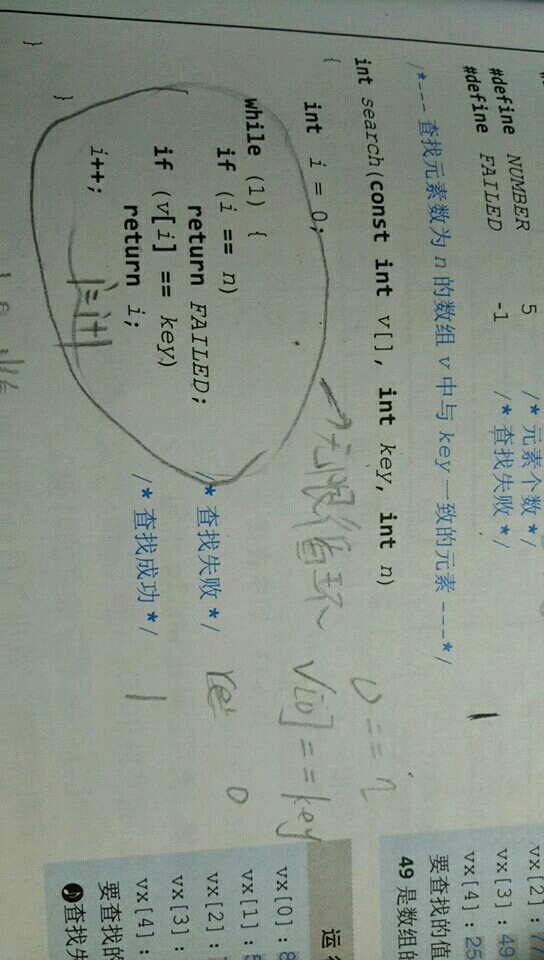 #define NUMBER 5 /* 元素个数 */
#define FAILED -1 /* 查找失败 */
/*--- 查找元素数为 n 的数组 v 中与 key 一致的元素 ---*/
int search(const int v[], int key, int n)
{
int i = 0;
while (1) {
if (i == n)
return FAILED; /* 查找失败 */
if (v[i] == key)
return i; /* 查找成功 */
i++;
}
}
i=i+1
无限循环
0 == n
V[i0]==key
0
1
vx[2] : 77
vx[3] : 49
vx[4] : 25
要查找的值
49 是数组的
运
vx[0] : 8
vx[1] :
vx[2] :
vx[3] :
vx[4] :
要查找的
查找失